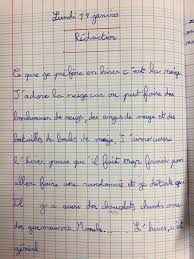 Lundi 11 janvier
Rédaction
Ce que je préfère en hiver c'est la neige.
J'adore la neige car on peut faire des
bonhommes de neige, des anges de neige et des
batailles de boules de neige. J'aime aussi
l'hiver parce que il fait trop froid pour
aller faire une randonnée et je déteste ça.
Il y a aussi des chocolats chauds avec
des guimauves. Mmmh... L'hiver, c'est
génial